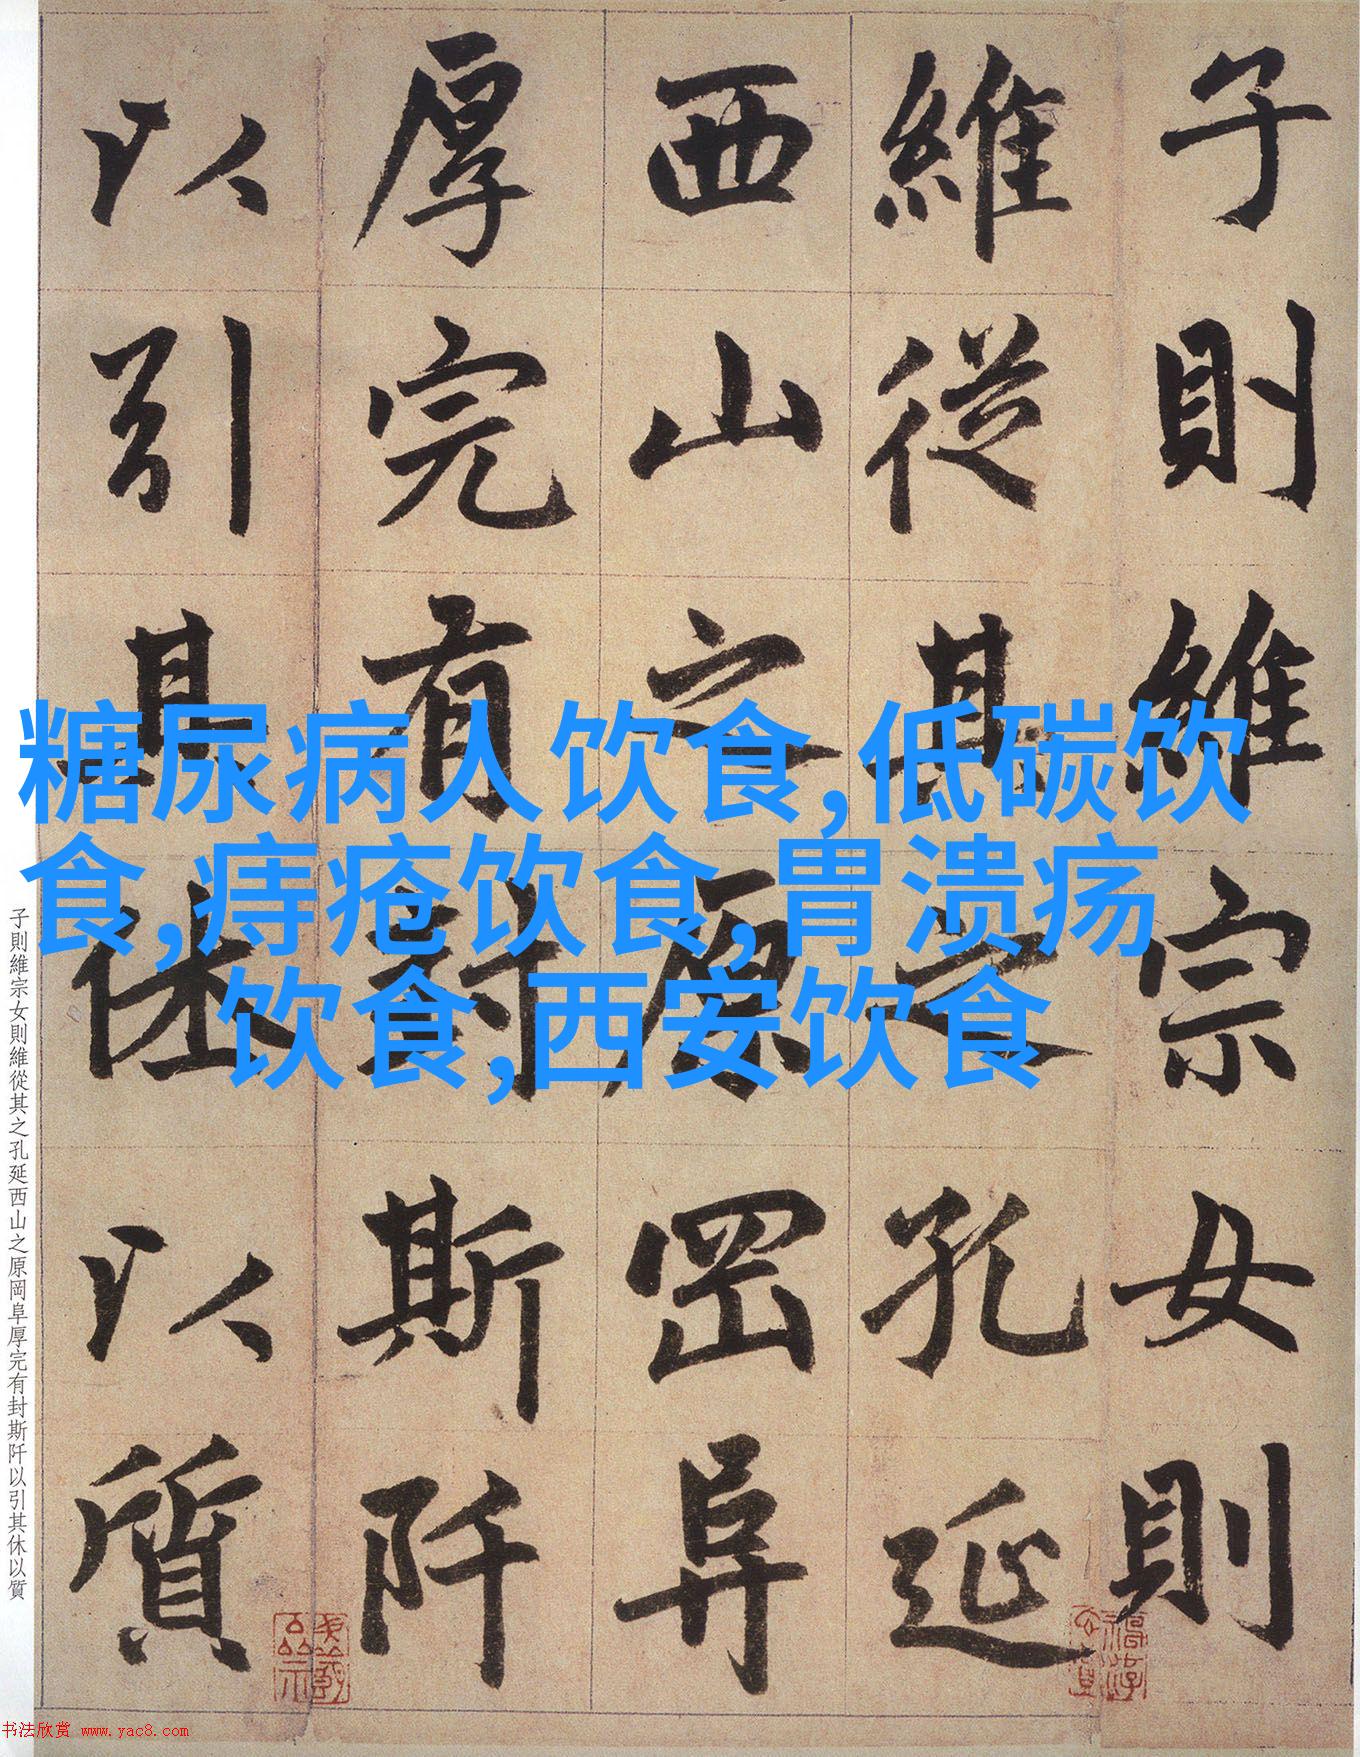 糖尿病人饮食,低碳饮
食,痔疮饮食,胃溃疡
饮食,西安饮食
子則維宗女則
維從其之孔延
西山之原岡阜
厚完有封斯阡
以引其休以質
子則維宗女則維從其之孔延西山之原岡阜厚完有封斯阡以引其休以質
书法欣赏 www.yac8.com